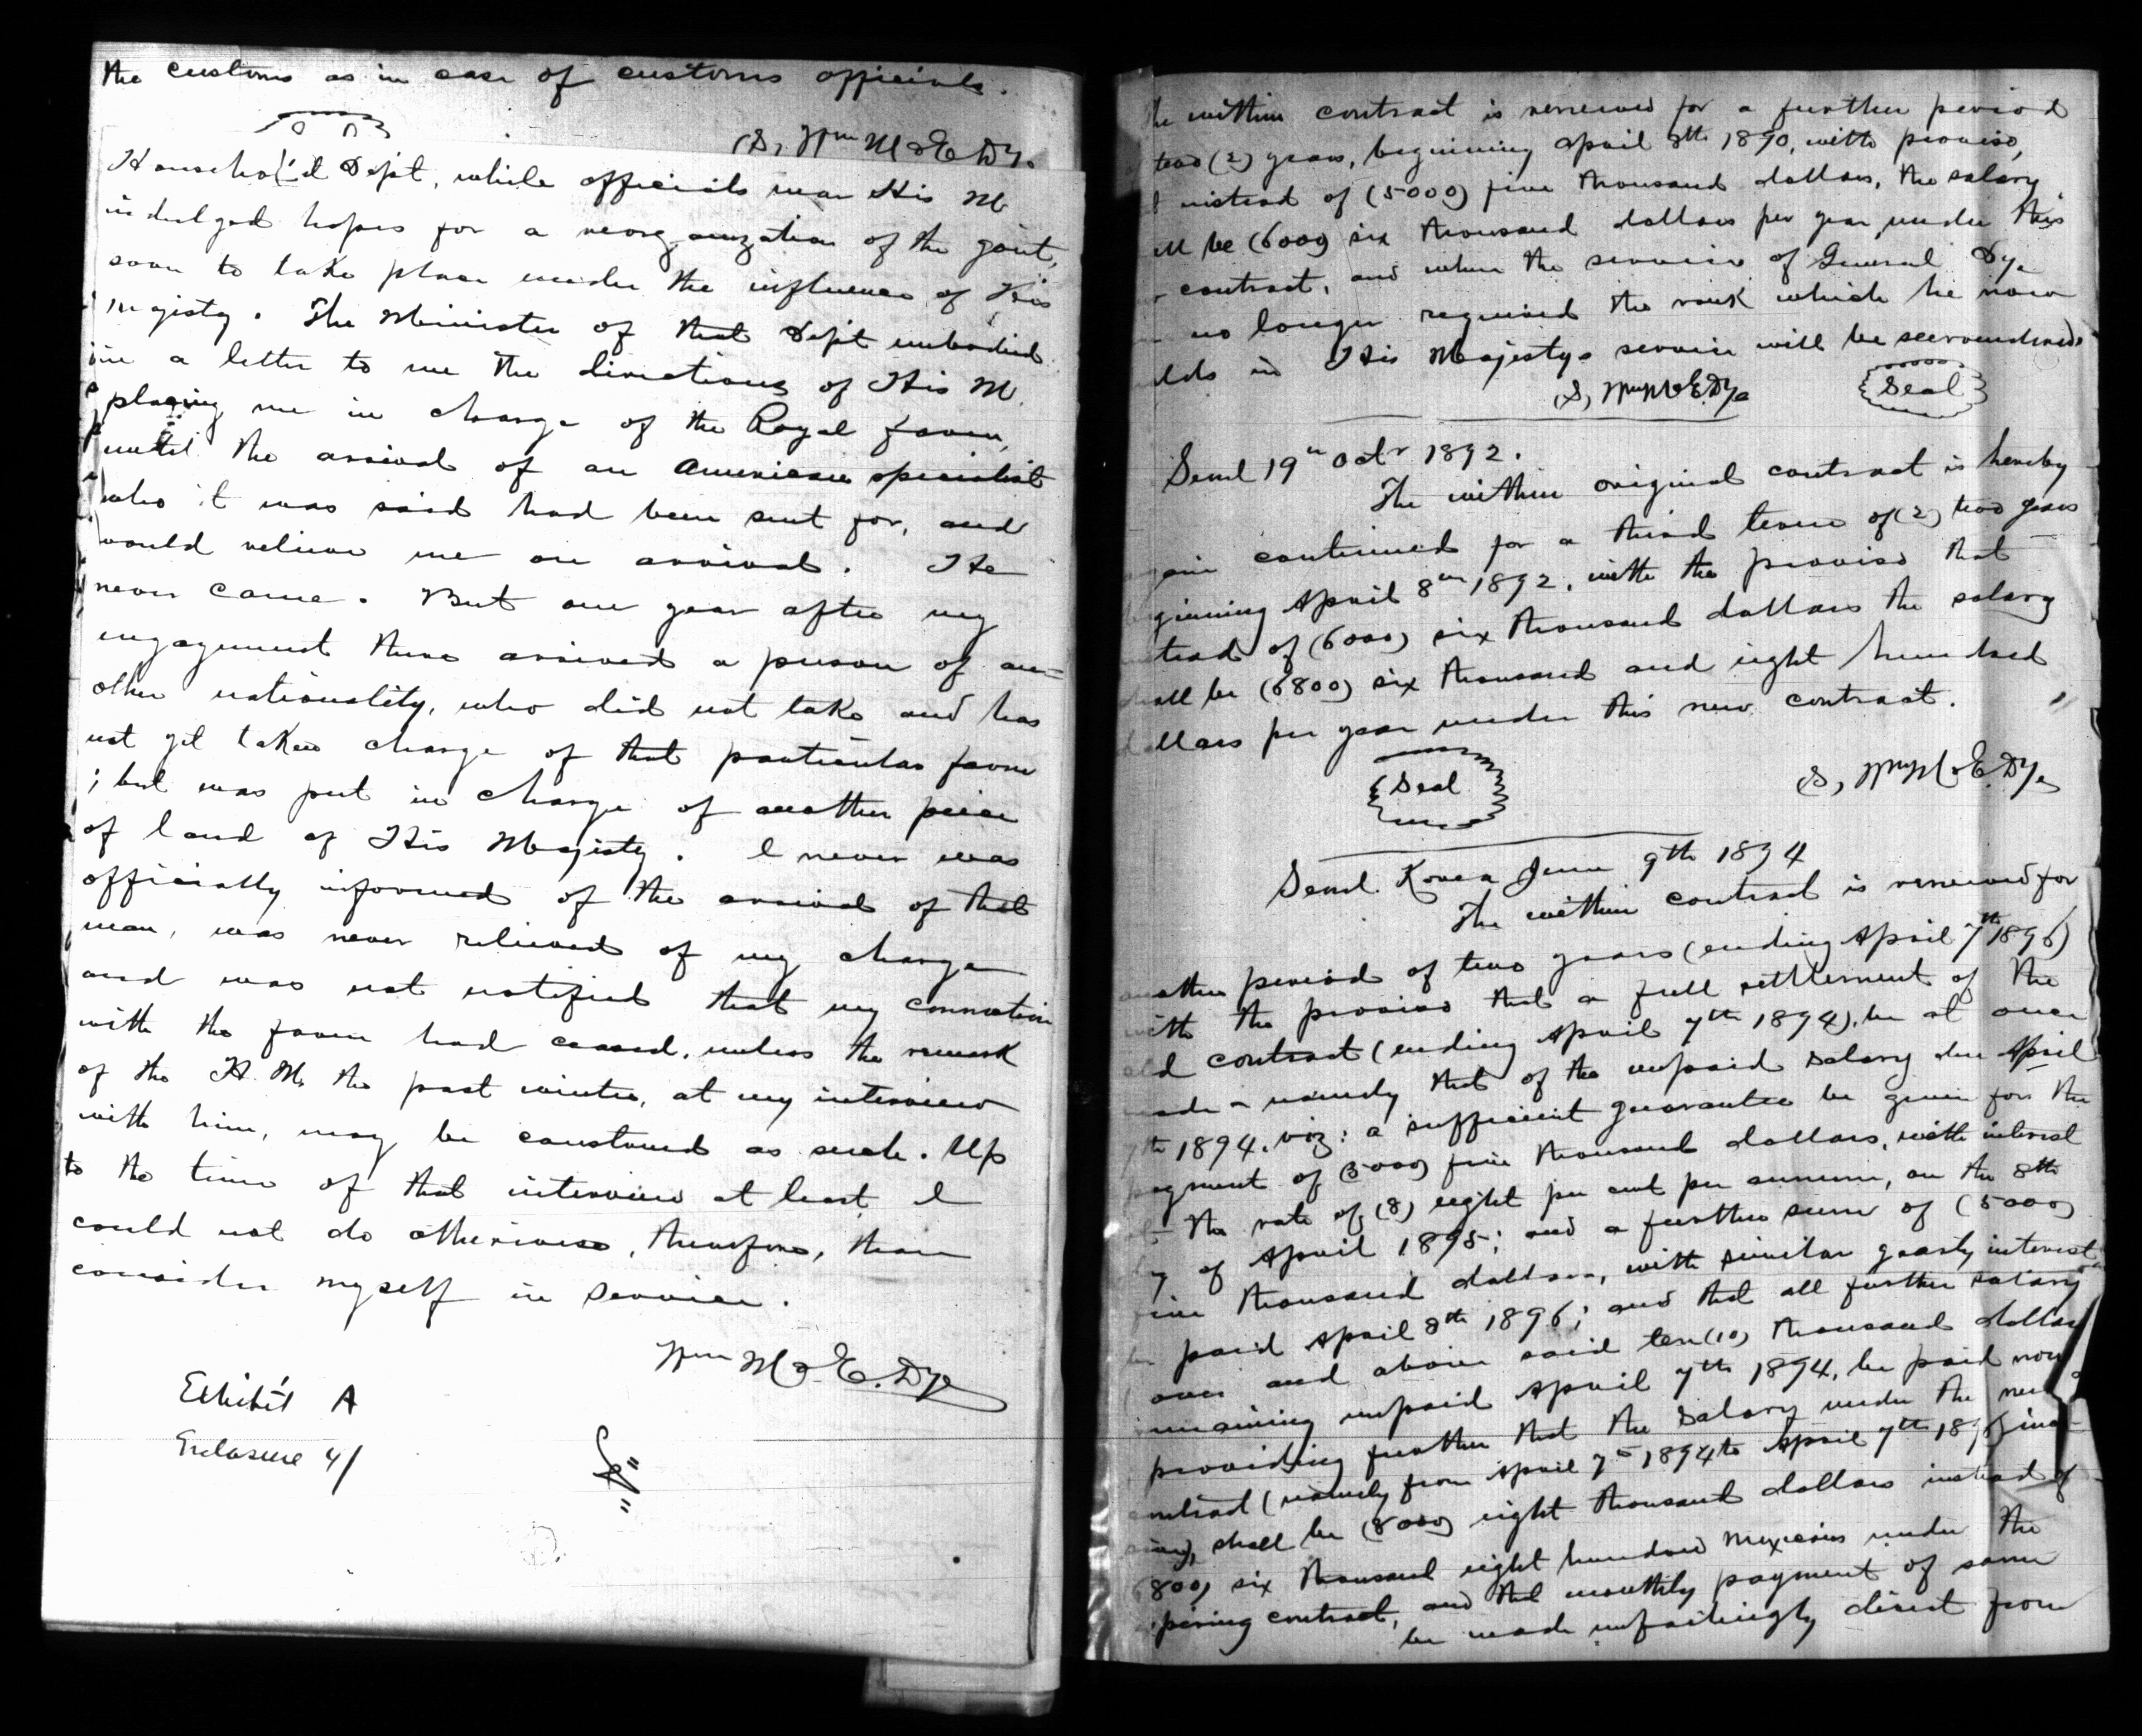 the customs as in case of customs officials.
(S, Wm McE Dye
Househol'd Dept, while officials near His M
indulged hopes for a reorganization of the govt,
soon to take place under the influence of His
Majisty. The Minister of that Dept embodied
in a letter to me the directions of His M.
placing me in charge of the Royal farm,
until the arrival of an American specialist
who it was said had been sent for, and
would relieve me on arrival. He
never came. But one year after my
engagement there arrived a person of an=
other nationality, who did not take and has
not yet taken charge of that particular farm
; but was put in charge of another piece
of land of His Majisty. I never was
officially informed of the arrival of that
man, was never relieved of my charge
and was not notified that my connection
with the farm had ceased, unless the remark
of the H. M. the past winter, at my interview
with him, may be construed as such. Up
to the time of that interview at least I
could not do otherwise, therefore, than
consider myself in service.
Wm McE. Dye
Exhibit A
Enclosure 4/
the within contract is renewed for a further period
two (2) years, beginning April 8th 1890, with proviso,
instead of (5000) five thousand dollars, the salary
be (6000) six thousand dollars per year under this
contract, and when the service of General Dye
no longer required the rank which he now
in His Majestys service will be surrendered.
(S, Wm McE. Dye
Seal
Seoul 19th Octr 1892.
The within original contract is hereby
continued for a third term of (2) two years
April 8th 1892, with the proviso that
of (6000) six thousand dollars the salary
shall be (6800) six thousand and eight hundred
dollars per year under this new contract.
Seal
(S, Wm McE. Dye
Seoul. Korea June 9th 1894
The within contract is renewed for
another period of two years (ending April 7th 1896)
with the proviso that a full settlement of the
old contract (ending April 7th 1894), be at once
made - namely that of the unpaid salary due April
7th 1894. viz: a sufficient guarantee be given for the
payment of (5000) five thousand dollars, with interest
the rate of (8) eight per cent per annum, on the 8th
of April 1895; and a further sum of (5000)
five thousand dollars, with similar yearly interest
paid April 8th 1896; and that all further salary
over and above said ten (10) thousand dollars
remaining unpaid April 7th 1894, be paid now
providing further that the salary under the new
contract (namely from April 7th 1894 to April 7th 1896
shall be (8000) eight thousand dollars instead of
six thousand eight hundred Mexicans under the
contract, and that monthly payment of same
be made unfailingly direct from